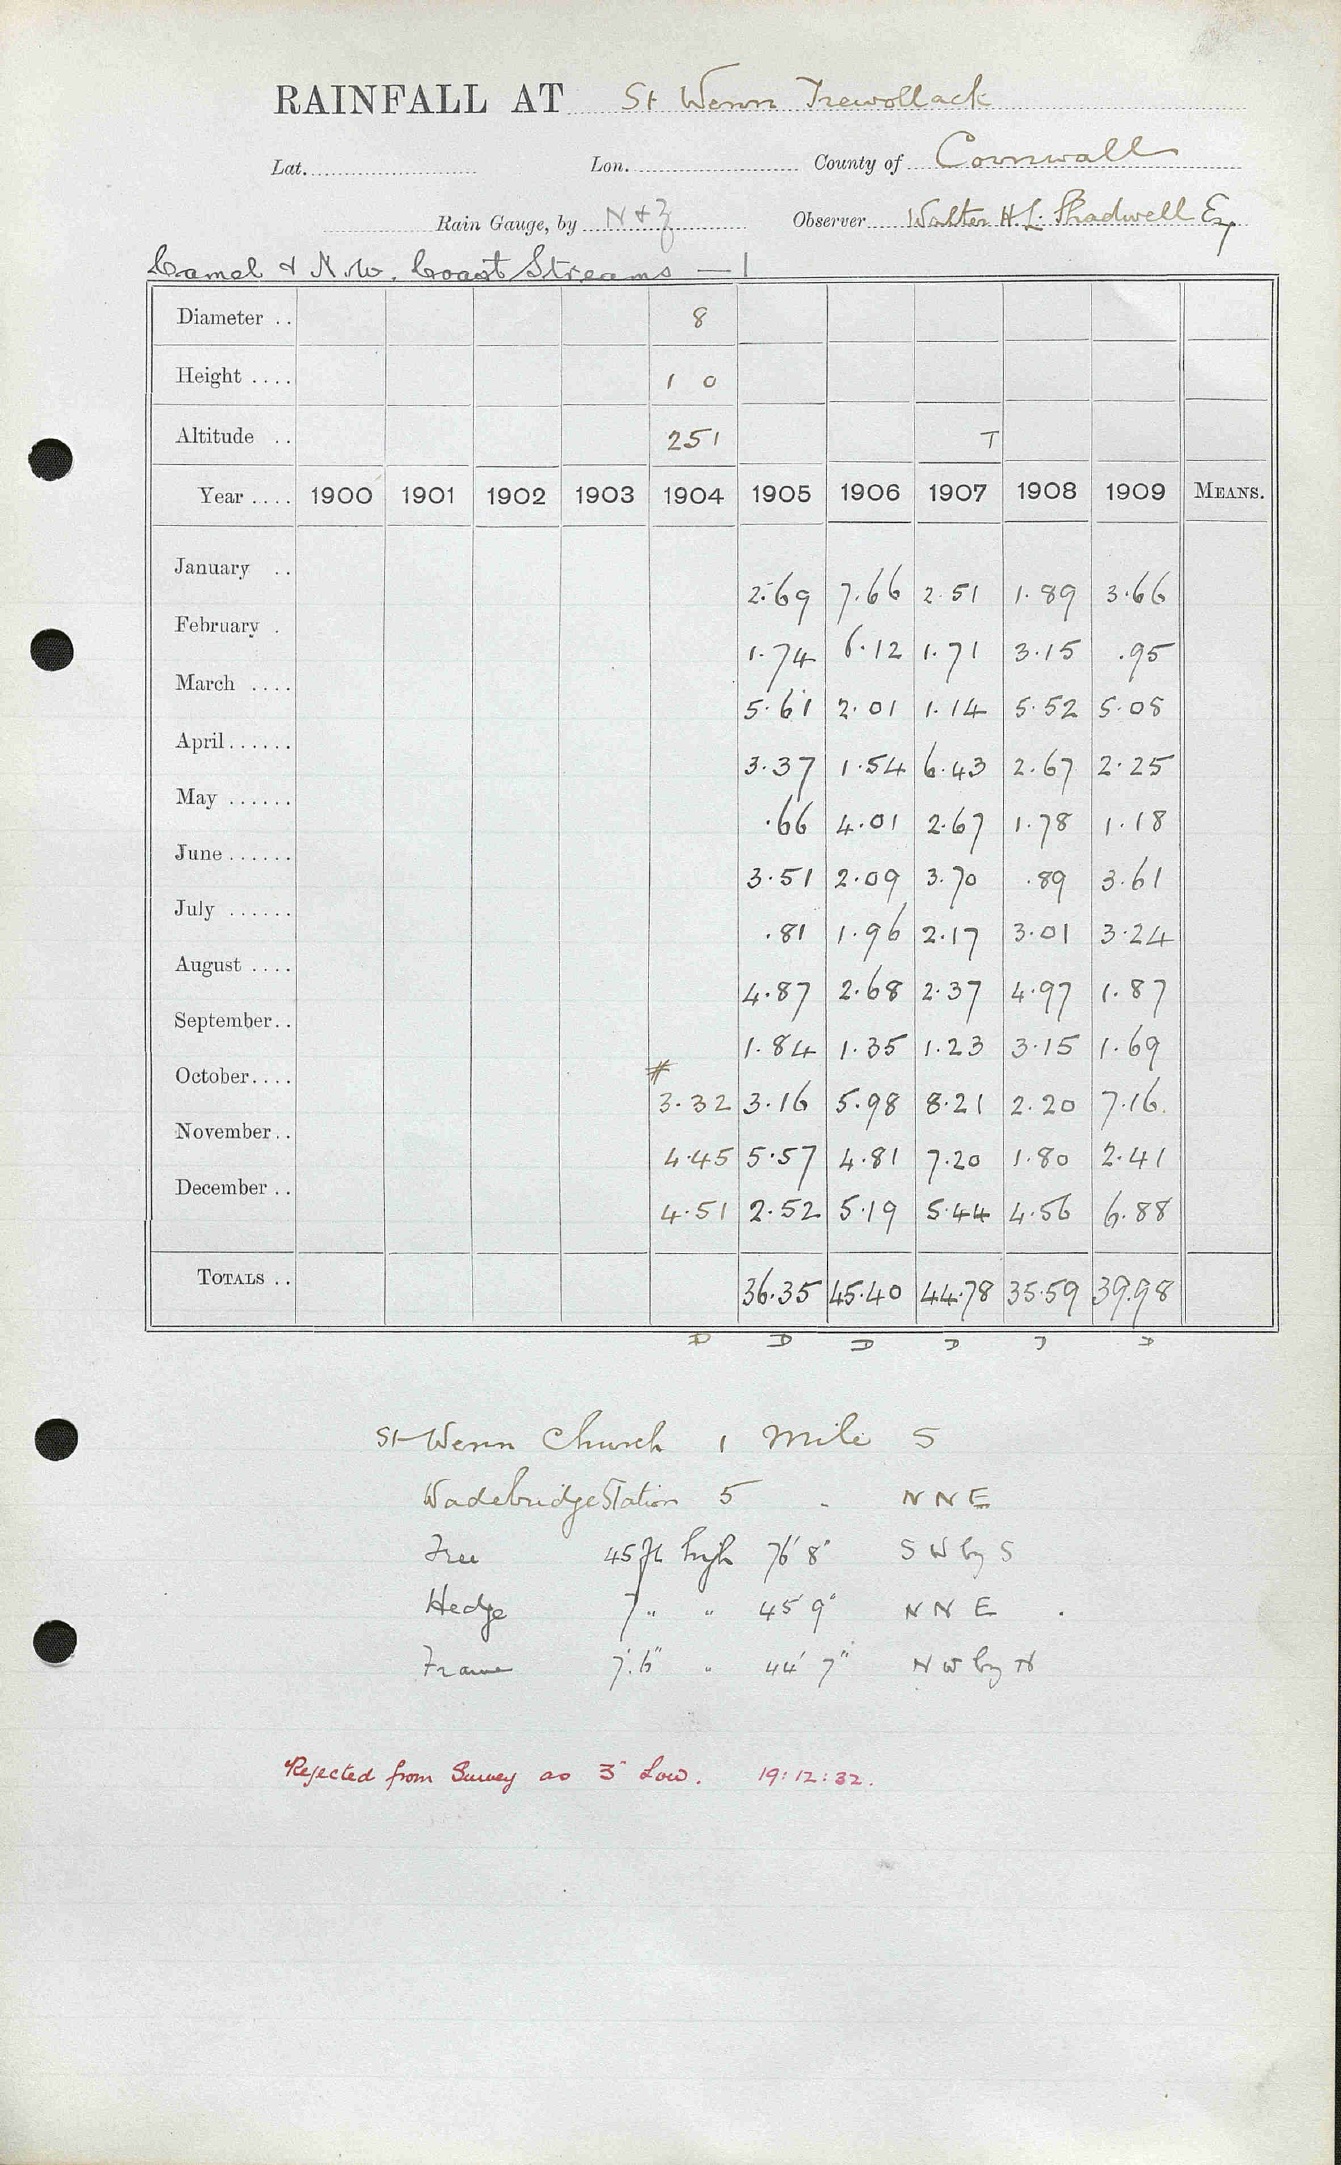 RAINFALL AT St Wenn Trewollack
Lat. Lon. County of Cornwall
Rain Gauge, by N & Z Observer Walter H. L. Shadwell Esq
Camel & N.W. Coast Streams — 1
Diameter .. 8
Height .... 1 0
Altitude .. 251 T
Year .... 1900 1901 1902 1903 1904 1905 1906 1907 1908 1909 MEANS.
January .. 2.69 7.66 2.51 1.89 3.66
February . 1.74 6.12 1.71 3.15 .95
March .... 5.61 2.01 1.14 5.52 5.08
April...... 3.37 1.54 6.43 2.67 2.25
May ...... .66 4.01 2.67 1.78 1.18
June...... 3.51 2.09 3.70 .89 3.61
July ...... .81 1.96 2.17 3.01 3.24
August .... 4.87 2.68 2.37 4.97 1.87
September.. 1.84 1.35 1.23 3.15 1.69
#
October.... 3.32 3.16 5.98 8.21 2.20 7.16
November.. 4.45 5.57 4.81 7.20 1.80 2.41
December .. 4.51 2.52 5.19 5.44 4.56 6.88
TOTALS .. 36.35 45.40 44.78 35.59 39.98
D D D D D D
St Wenn Church 1 Mile S
Wadebridge Station 5 " NNE
Tree 45 ft high 76' 8" SW by S
Hedge 7 " " 45' 9" NNE
Frame 7' 6" " 44' 7" NW by N
Rejected from Survey as 3" Low. 19:12:32.